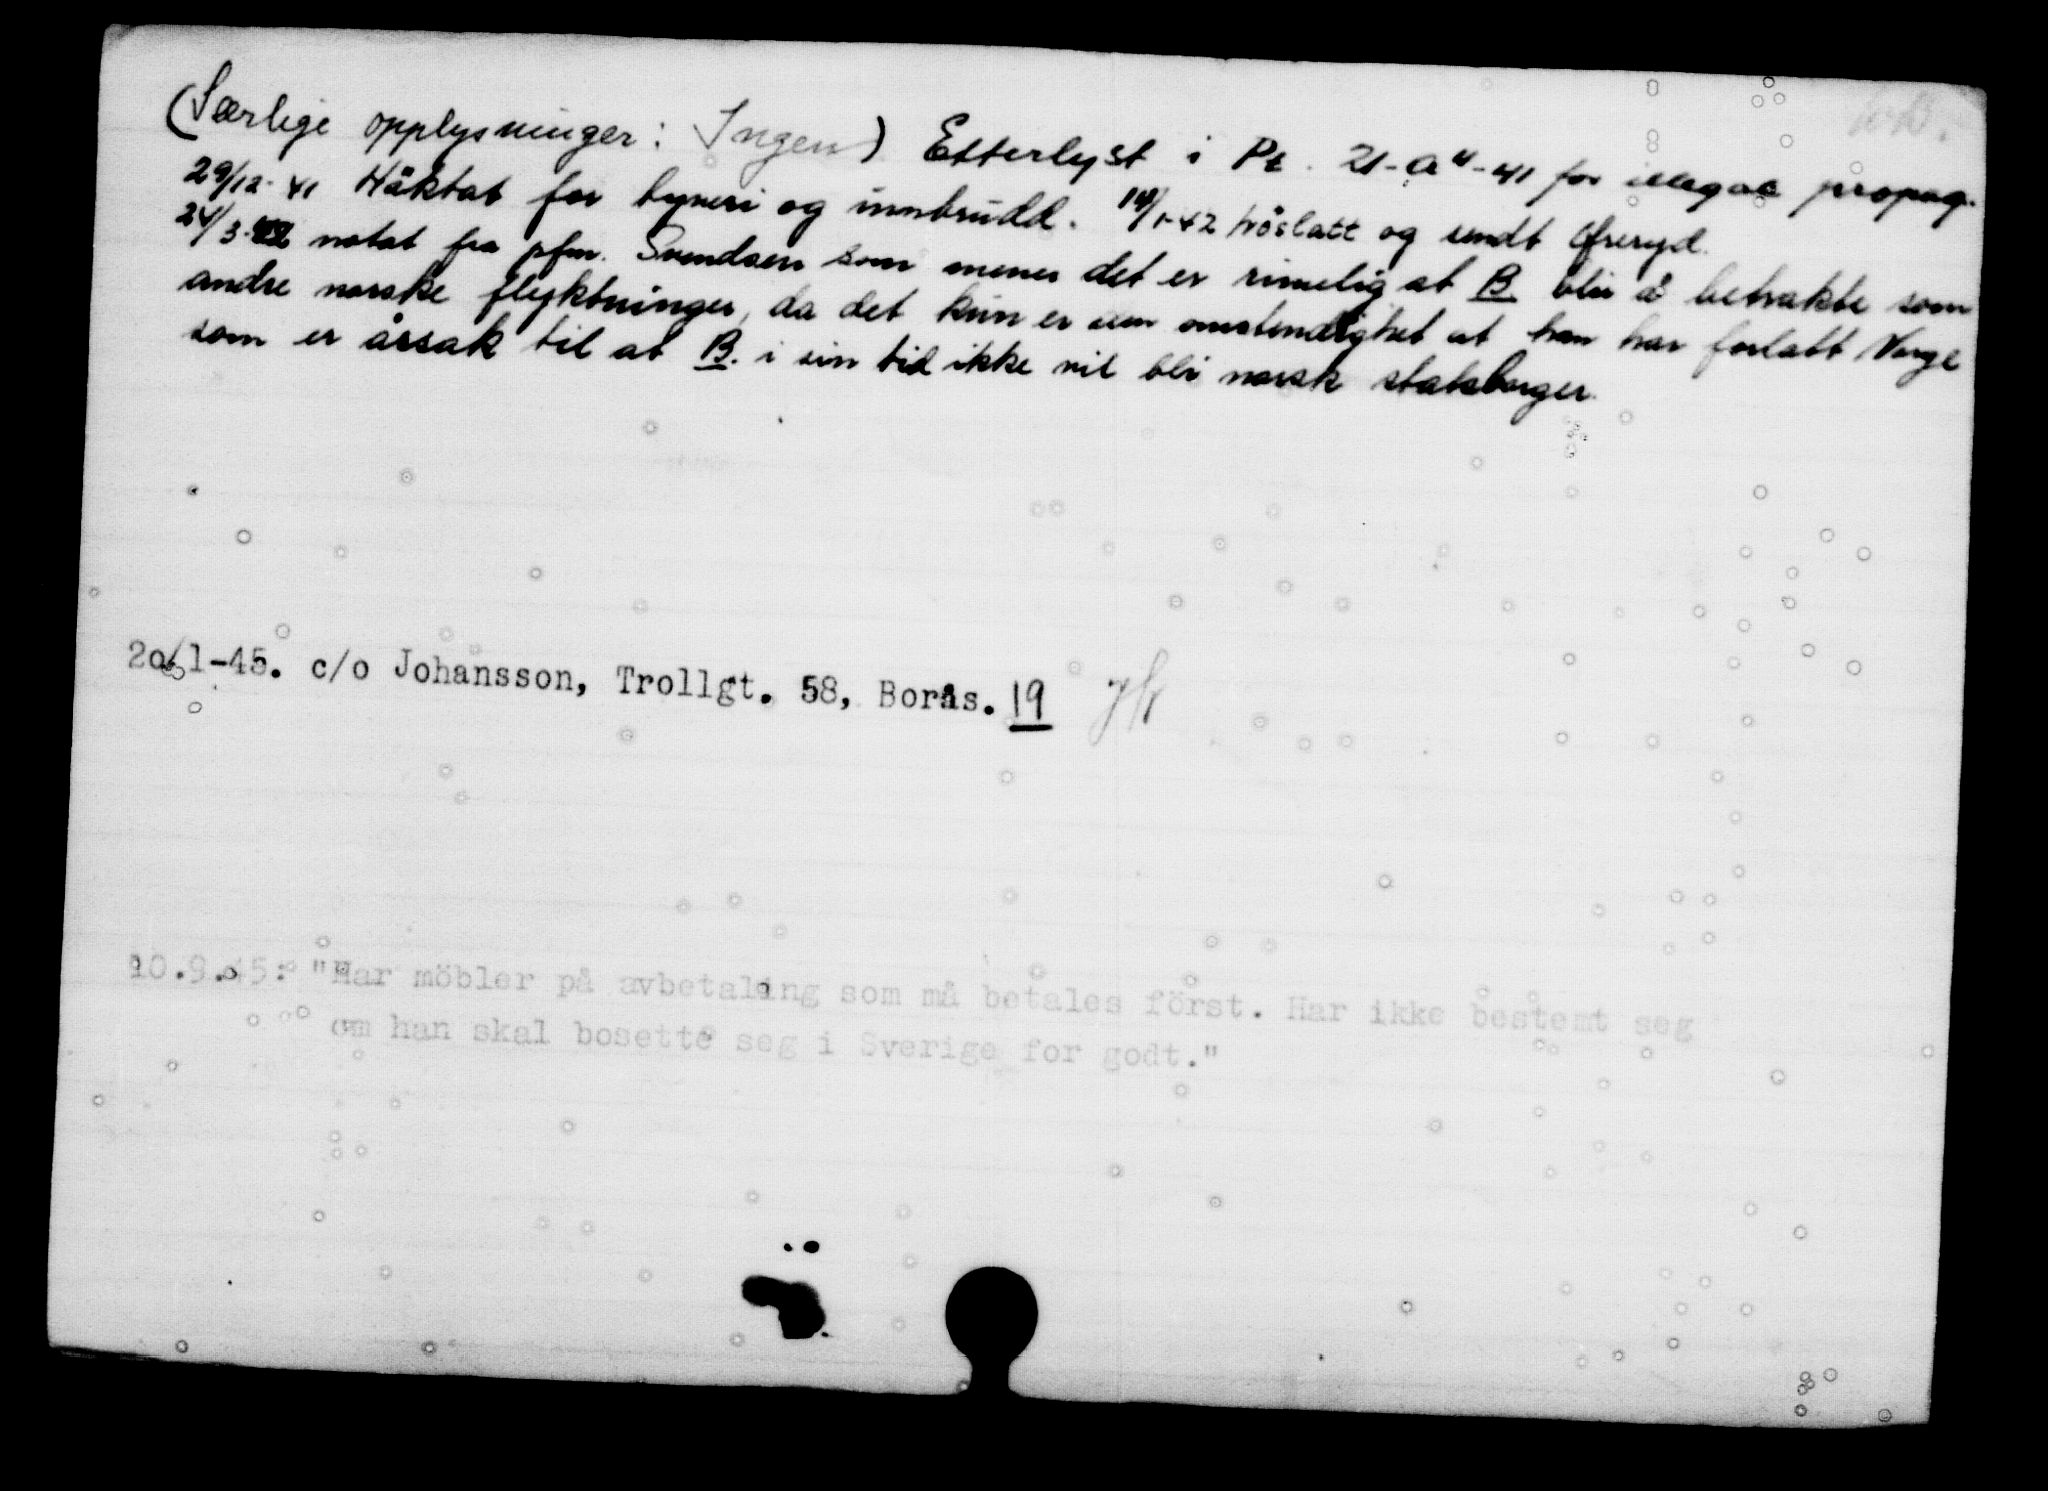 (Særlige opplysninger: Ingen) Etterlyst i Pt. 21-a4-41 for illegal propag.
29/12-41 Häktat for tyveri og innbrudd. 14/1-42 löslatt og sendt Öreryd.
24/3-42 notat fra pfm. Svendsen som mener det er rimelig at B blir å betrakte som
andre norske flyktninger, da det kun er den omstendighet at han har forlatt Norge
som er årsak til at B. i sin tid ikke vil bli norsk statsborger.
20/1-45. c/o Johansson, Trollgt. 58, Borås. 19
10.9.45: "Har möbler på avbetaling som må betales först. Har ikke bestemt seg
om han skal bosette seg i Sverige for godt."